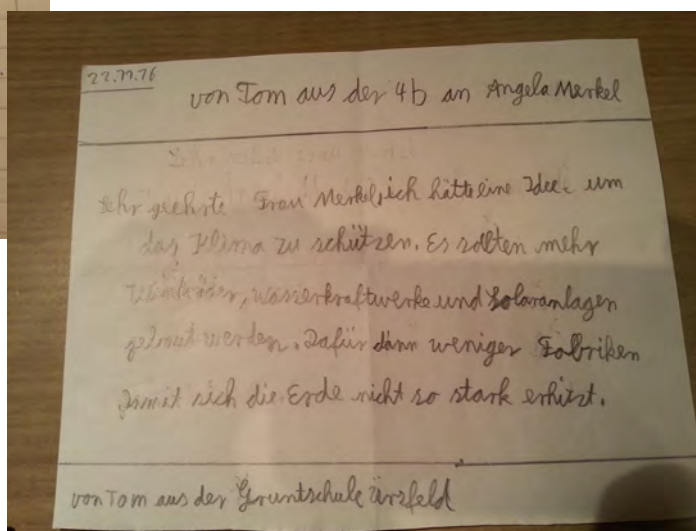 22.11.16
von Tom aus der 4b an Angela Merkel
Sehr geehrte Frau Merkel, ich hätte eine Idee um
das Klima zu schützen. Es sollten mehr
Windräder, wasserkraftwerke und Solaranlagen
gebaut werden. Dafür dann weniger Fabriken
Damit sich die Erde nicht so stark erhitzt.
von Tom aus der Gruntschule ürsfeld